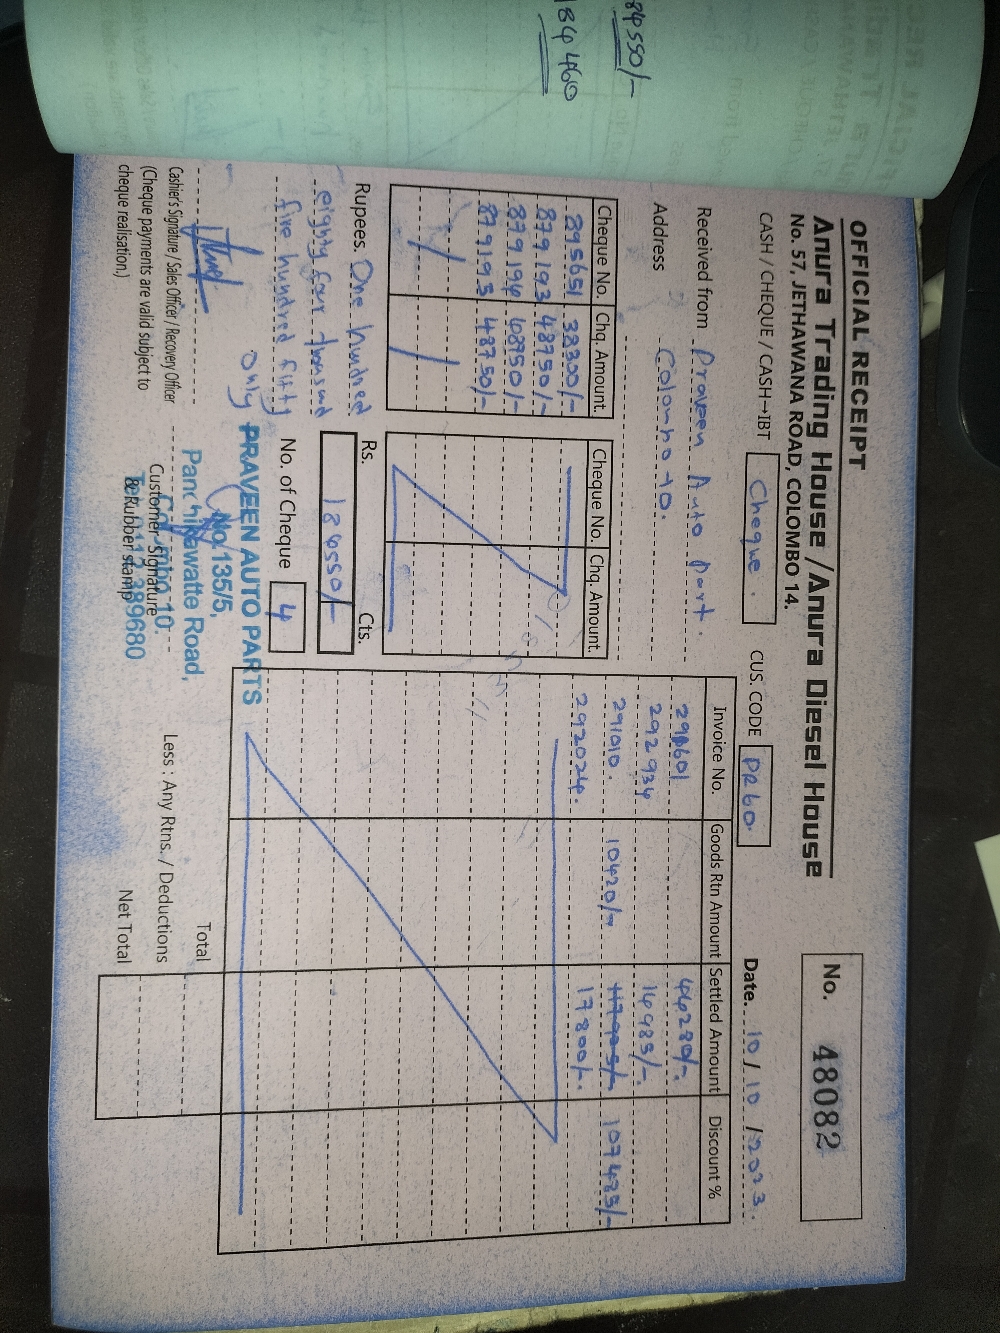 84550/-
184460
OFFICIAL RECEIPT
Anura Trading House / Anura Diesel House
No. 57, JETHAWANA ROAD, COLOMBO 14.
No. 48082
CASH / CHEQUE / CASH→IBT Cheque. CUS. CODE PR60 Date. 10 / 10 / 2023.
Received from Praveen Auto part.
Address Colombo -10.
Cheque No. Chq. Amount. Cheque No. Chq. Amount.
895651 38300/-
879193 48750/-
879194 48750/-
879195 48750/-
Invoice No. Goods Rtn Amount Settled Amount Discount %
290601 44280/-
292934 14985/-
291010. 10420/- 117905/- 107485/-
292024. 17800/-
Rupees. One hundred
eighty four thousand
five hundred fifty
only
Rs. Cts.
184550/-
No. of Cheque 4
PRAVEEN AUTO PARTS
No.135/5,
Panchikawatte Road,
Colombo 10.
Cashier's Signature / Sales Officer / Recovery Officer
(Cheque payments are valid subject to
cheque realisation.)
Customer Signature
& Rubber stamp
Total
Less : Any Rtns. / Deductions
Net Total